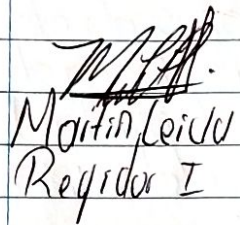 Martin Leiva
Regidor I